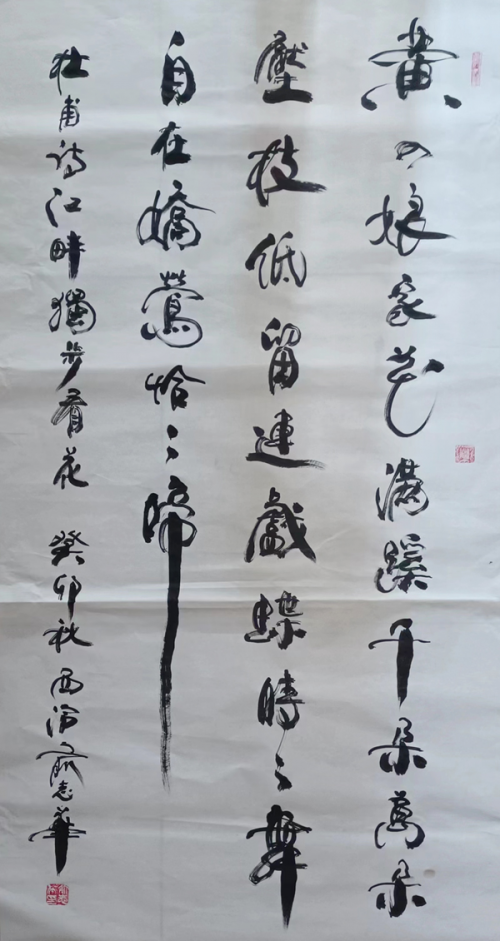 黄四娘家花满蹊千朵万朵
壓枝低留連戲蝶時〻舞
自在嬌鶯恰〻啼
杜甫詩江畔獨步看花 癸卯秋西泠俞志華